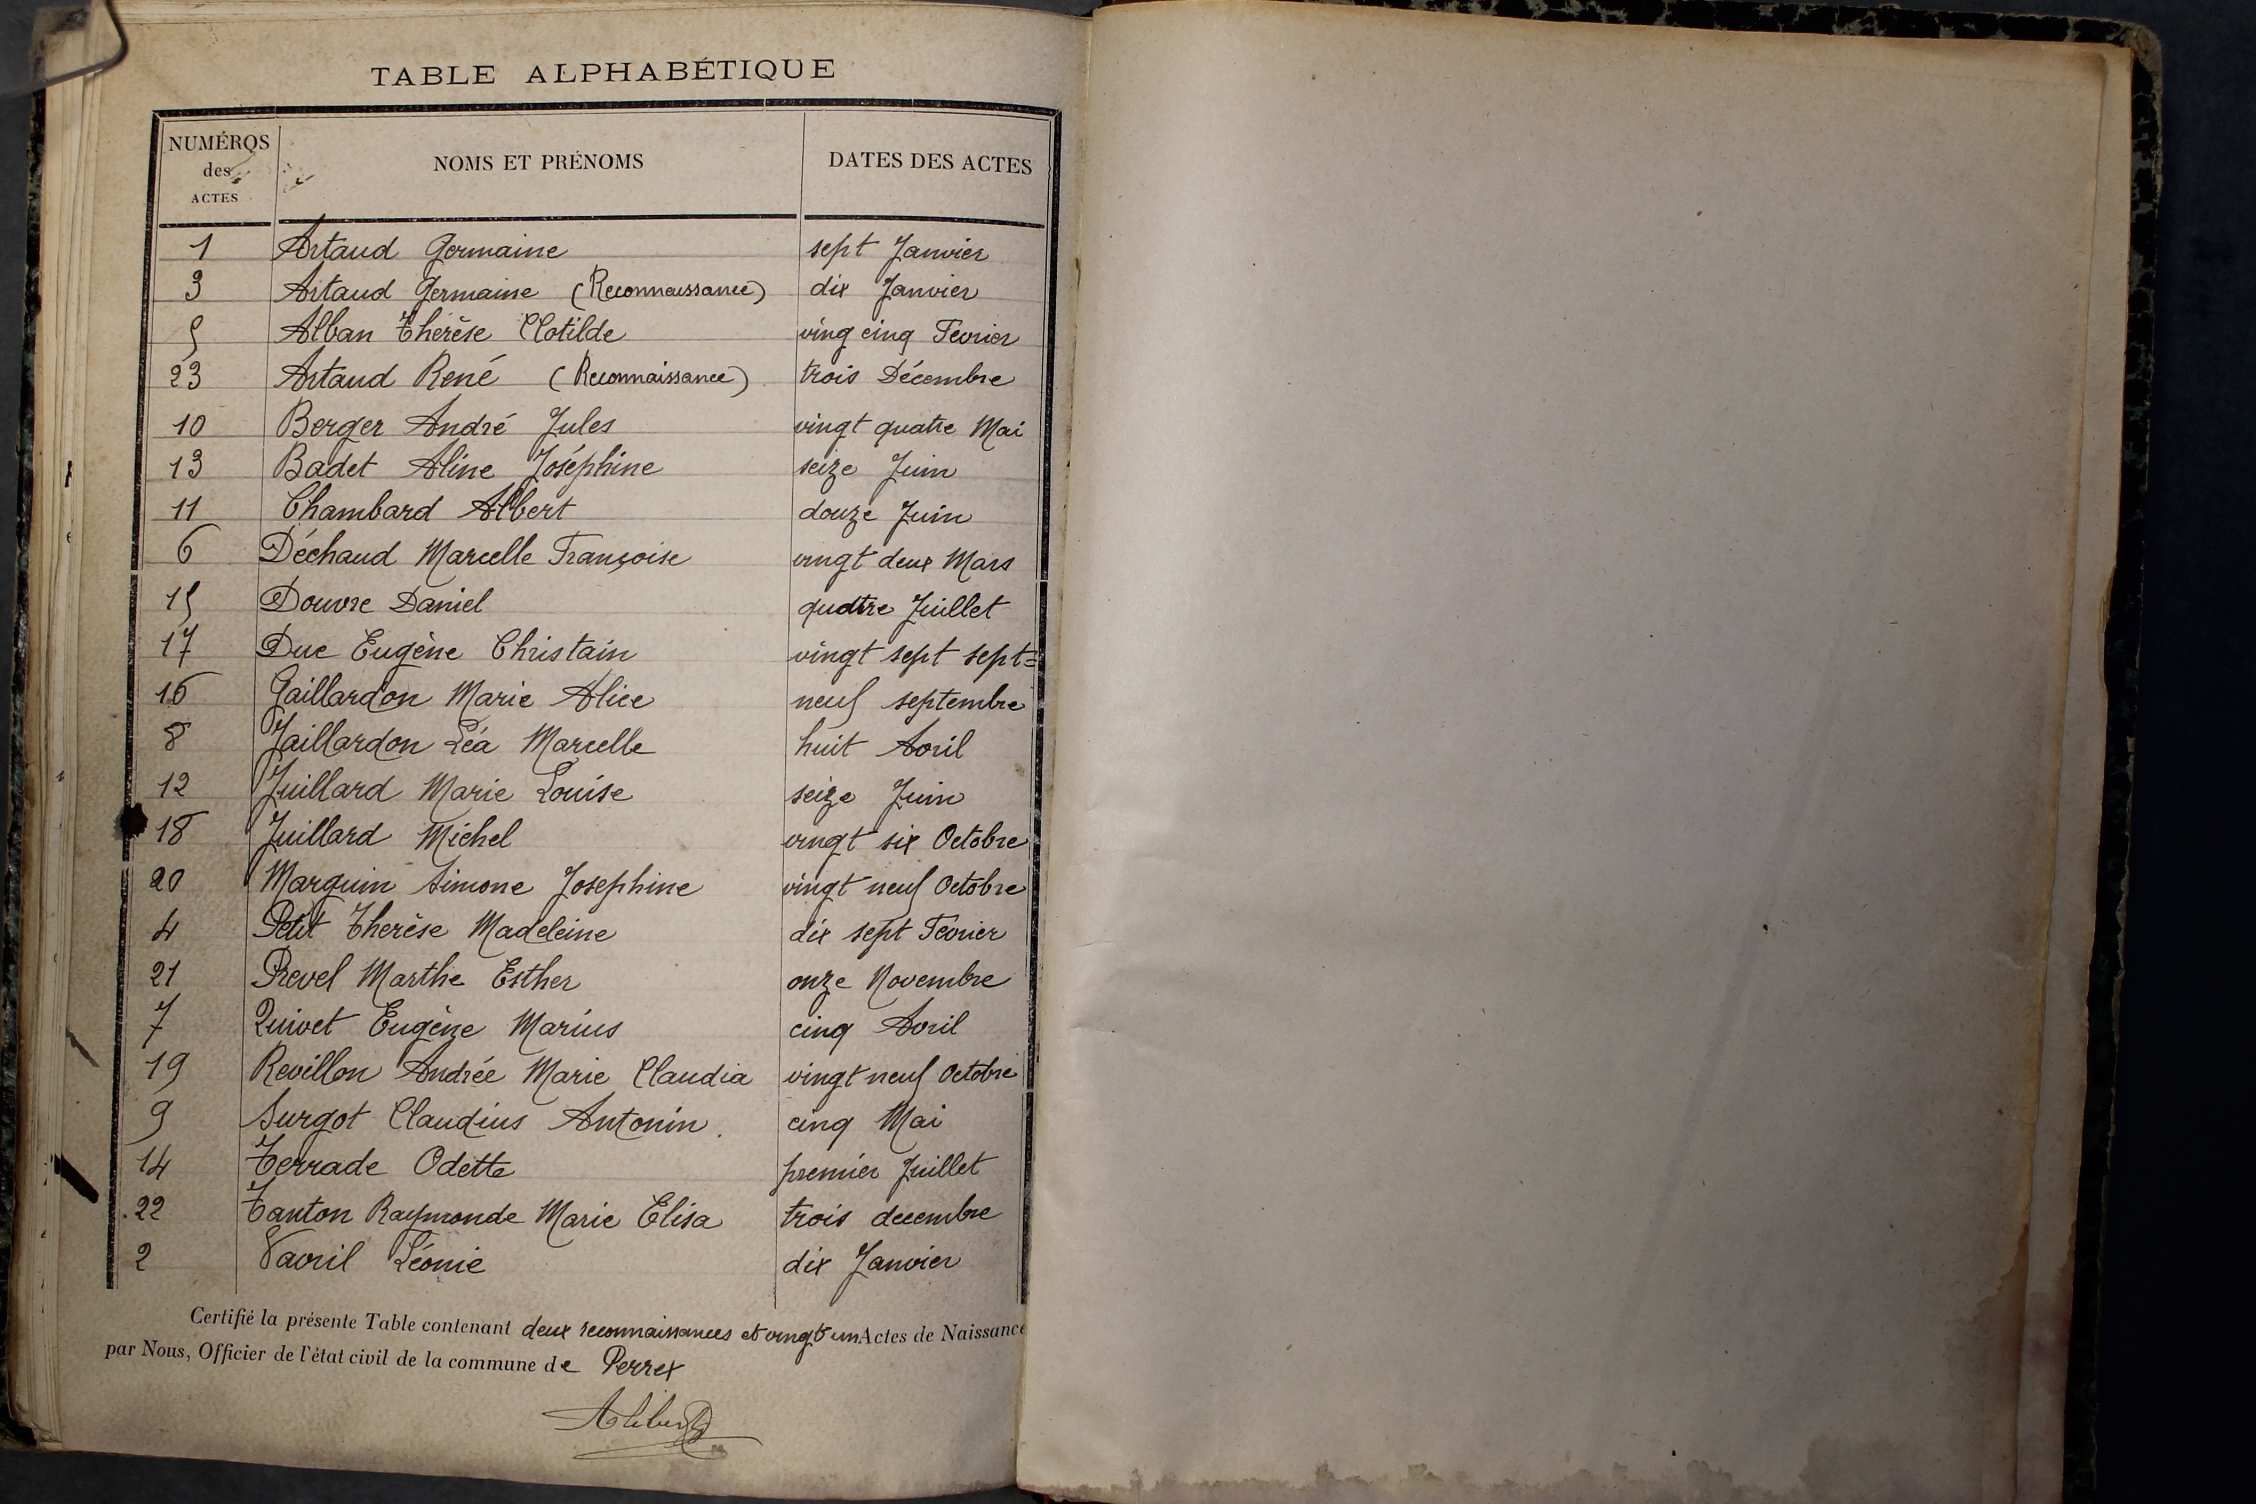 TABLE ALPHABÉTIQUE
NUMÉROS des ACTES NOMS ET PRÉNOMS DATES DES ACTES
1 Artaud Germaine sept Janvier
3 Artaud Germaine (Reconnaissance) dix Janvier
5 Alban Thérèse Clotilde ving cinq Fevrier
23 Artaud René (Reconnaissance) trois Décembre
10 Berger André Jules vingt quatre Mai
13 Badet Aline Joséphine seize Juin
11 Chambard Albert douze Juin
6 Déchaud Marcelle Françoise vingt deux Mars
15 Douvre Daniel quatre Juillet
17 Duc Eugène Christain vingt sept sept=
16 Gaillardon Marie Alice neuf septembre
8 Jaillardon Léa Marcelle huit Avril
12 Juillard Marie Louise seize Juin
18 Juillard Michel vingt six Octobre
20 Marguin Simone Josephine vingt neuf Octobre
4 Petit Therèse Madeleine dix sept Fevrier
21 Prevel Marthe Esther onze Novembre
7 Quivet Eugène Marius cinq Avril
19 Revillon Andrée Marie Claudia vingt neuf Octobre
9 Surgot Claudius Antonin. cinq Mai
14 Terrade Odette premier Juillet
22 Tanton Raymonde Marie Elisa trois decembre
2 Vavril Léonie dix Janvier
Certifié la présente Table contenant deux reconnaissances et vingt un Actes de Naissance
par Nous, Officier de l'état civil de la commune de Perrex